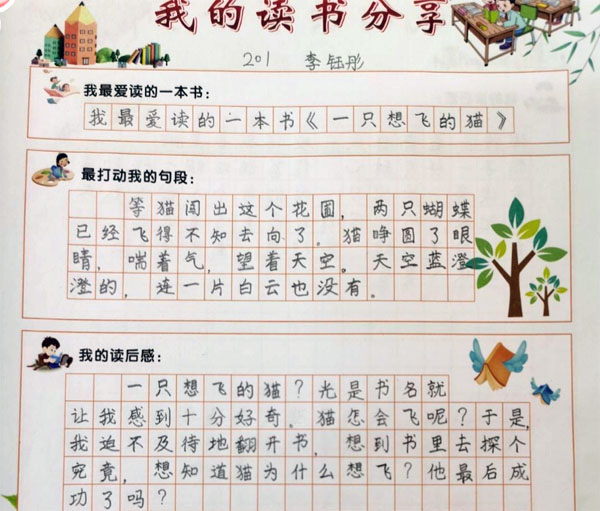 我的读书分享
201 李钰彤
我最爱读的一本书：
我最爱读的一本书《一只想飞的猫》
最打动我的句段：
等猫闯出这个花圆，两只蝴蝶
已经飞得不知去向了。猫睁圆了眼
睛，喘着气，望着天空。天空蓝澄
澄的，连一片白云也没有。
我的读后感：
一只想飞的猫？光是书名就
让我感到十分好奇。猫怎会飞呢？于是，
我迫不及待地翻开书，想到书里去探个
究竟，想知道猫为什么想飞？他最后成
功了吗？